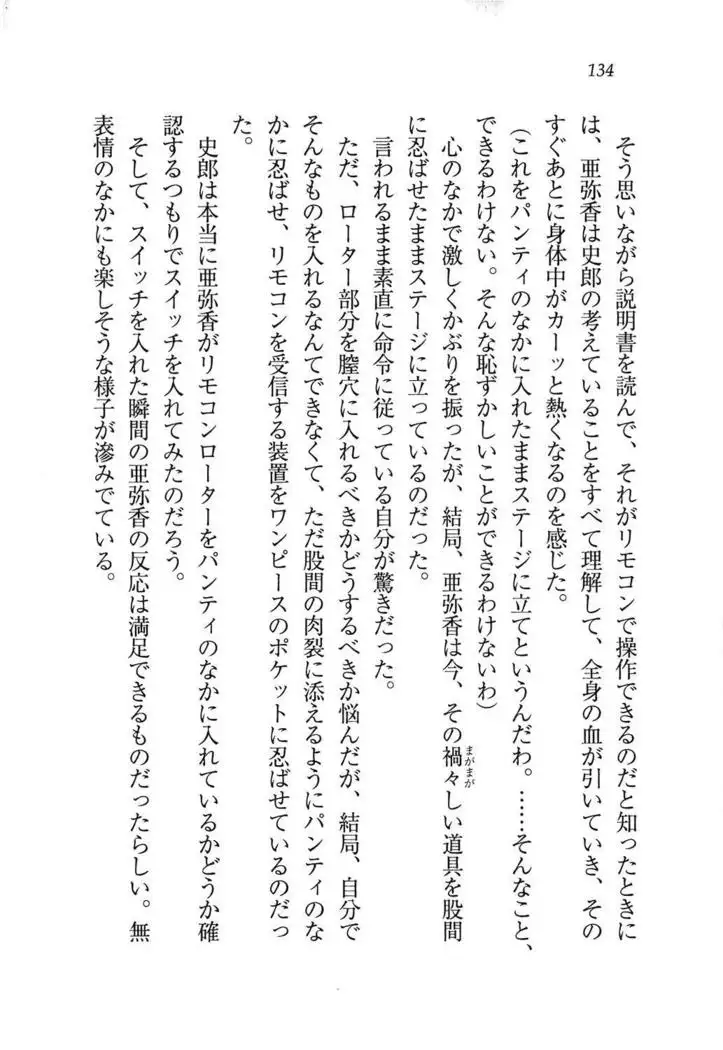 134
そう思いながら説明書を読んで、それがリモコンで操作できるのだと知ったときに
は、亜弥香は史郎の考えていることをすべて理解して、全身の血が引いていき、その
すぐあとに身体中がカーッと熱くなるのを感じた。
(これをパンティのなかに入れたままステージに立てというんだわ。……そんなこと、
できるわけない。そんな恥ずかしいことができるわけないわ)
心のなかで激しくかぶりを振ったが、結局、亜弥香は今、その禍々しい道具を股間
に忍ばせたままステージに立っているのだった。
言われるまま素直に命令に従っている自分が驚きだった。
ただ、ローター部分を膣穴に入れるべきかどうするべきか悩んだが、結局、自分で
そんなものを入れるなんてできなくて、ただ股間の肉裂に添えるようにパンティのな
かに忍ばせ、リモコンを受信する装置をワンピースのポケットに忍ばせているのだっ
た。
史郎は本当に亜弥香がリモコンローターをパンティのなかに入れているかどうか確
認するつもりでスイッチを入れてみたのだろう。
そして、スイッチを入れた瞬間の亜弥香の反応は満足できるものだったらしい。無
表情のなかにも楽しそうな様子が滲みでている。